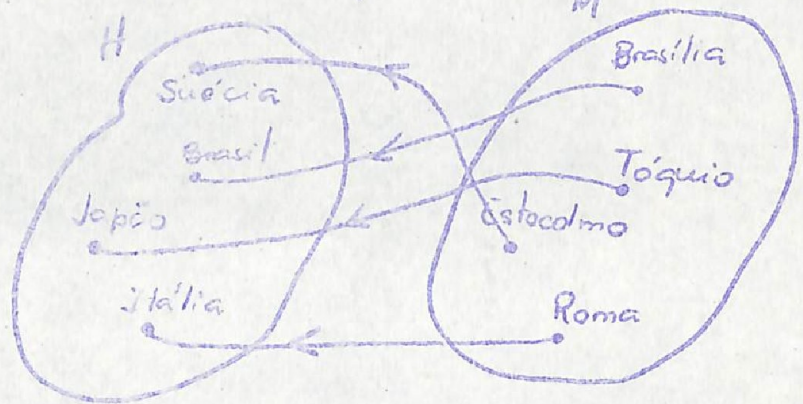 H
M
Suécia
Brasil
Japão
itália
Brasília
Tóquio
Estocolmo
Roma